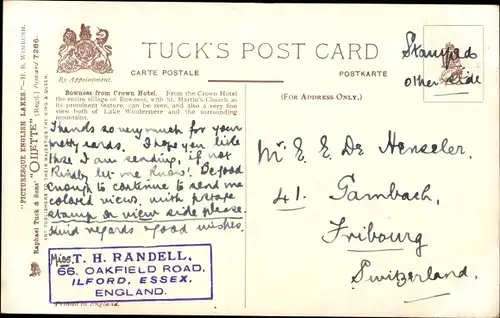 "PICTURESQUE ENGLISH LAKES."—H. B. WIMBUSH.
Raphael Tuck & Sons' "OILETTE" [Regd.] Postcard 7286.
ART PUBLISHERS TO THEIR MAJESTIES THE KING & QUEEN.
By Appointment.
TUCK'S POST CARD
CARTE POSTALE POSTKARTE
Stamped
other side
Bowness from Crown Hotel. From the Crown Hotel
the entire village of Bowness, with St. Martin's Church as
its prominent feature, can be seen, and also a very fine
view both of Lake Windermere and the surrounding
mountains.
(FOR ADDRESS ONLY.)
Thanks so very much for your
pretty cards. I hope you like
these I am sending, if not
kindly let me know. Be good
enough to continue to send me
colored views, with postage
stamp on view side please.
Kind regards & good wishes.
Miss T. H. RANDELL,
66, OAKFIELD ROAD,
ILFORD, ESSEX,
ENGLAND.
Printed in England.
Mr E. E. De Henseler.
41. Gambach,
Fribourg
Switzerland.